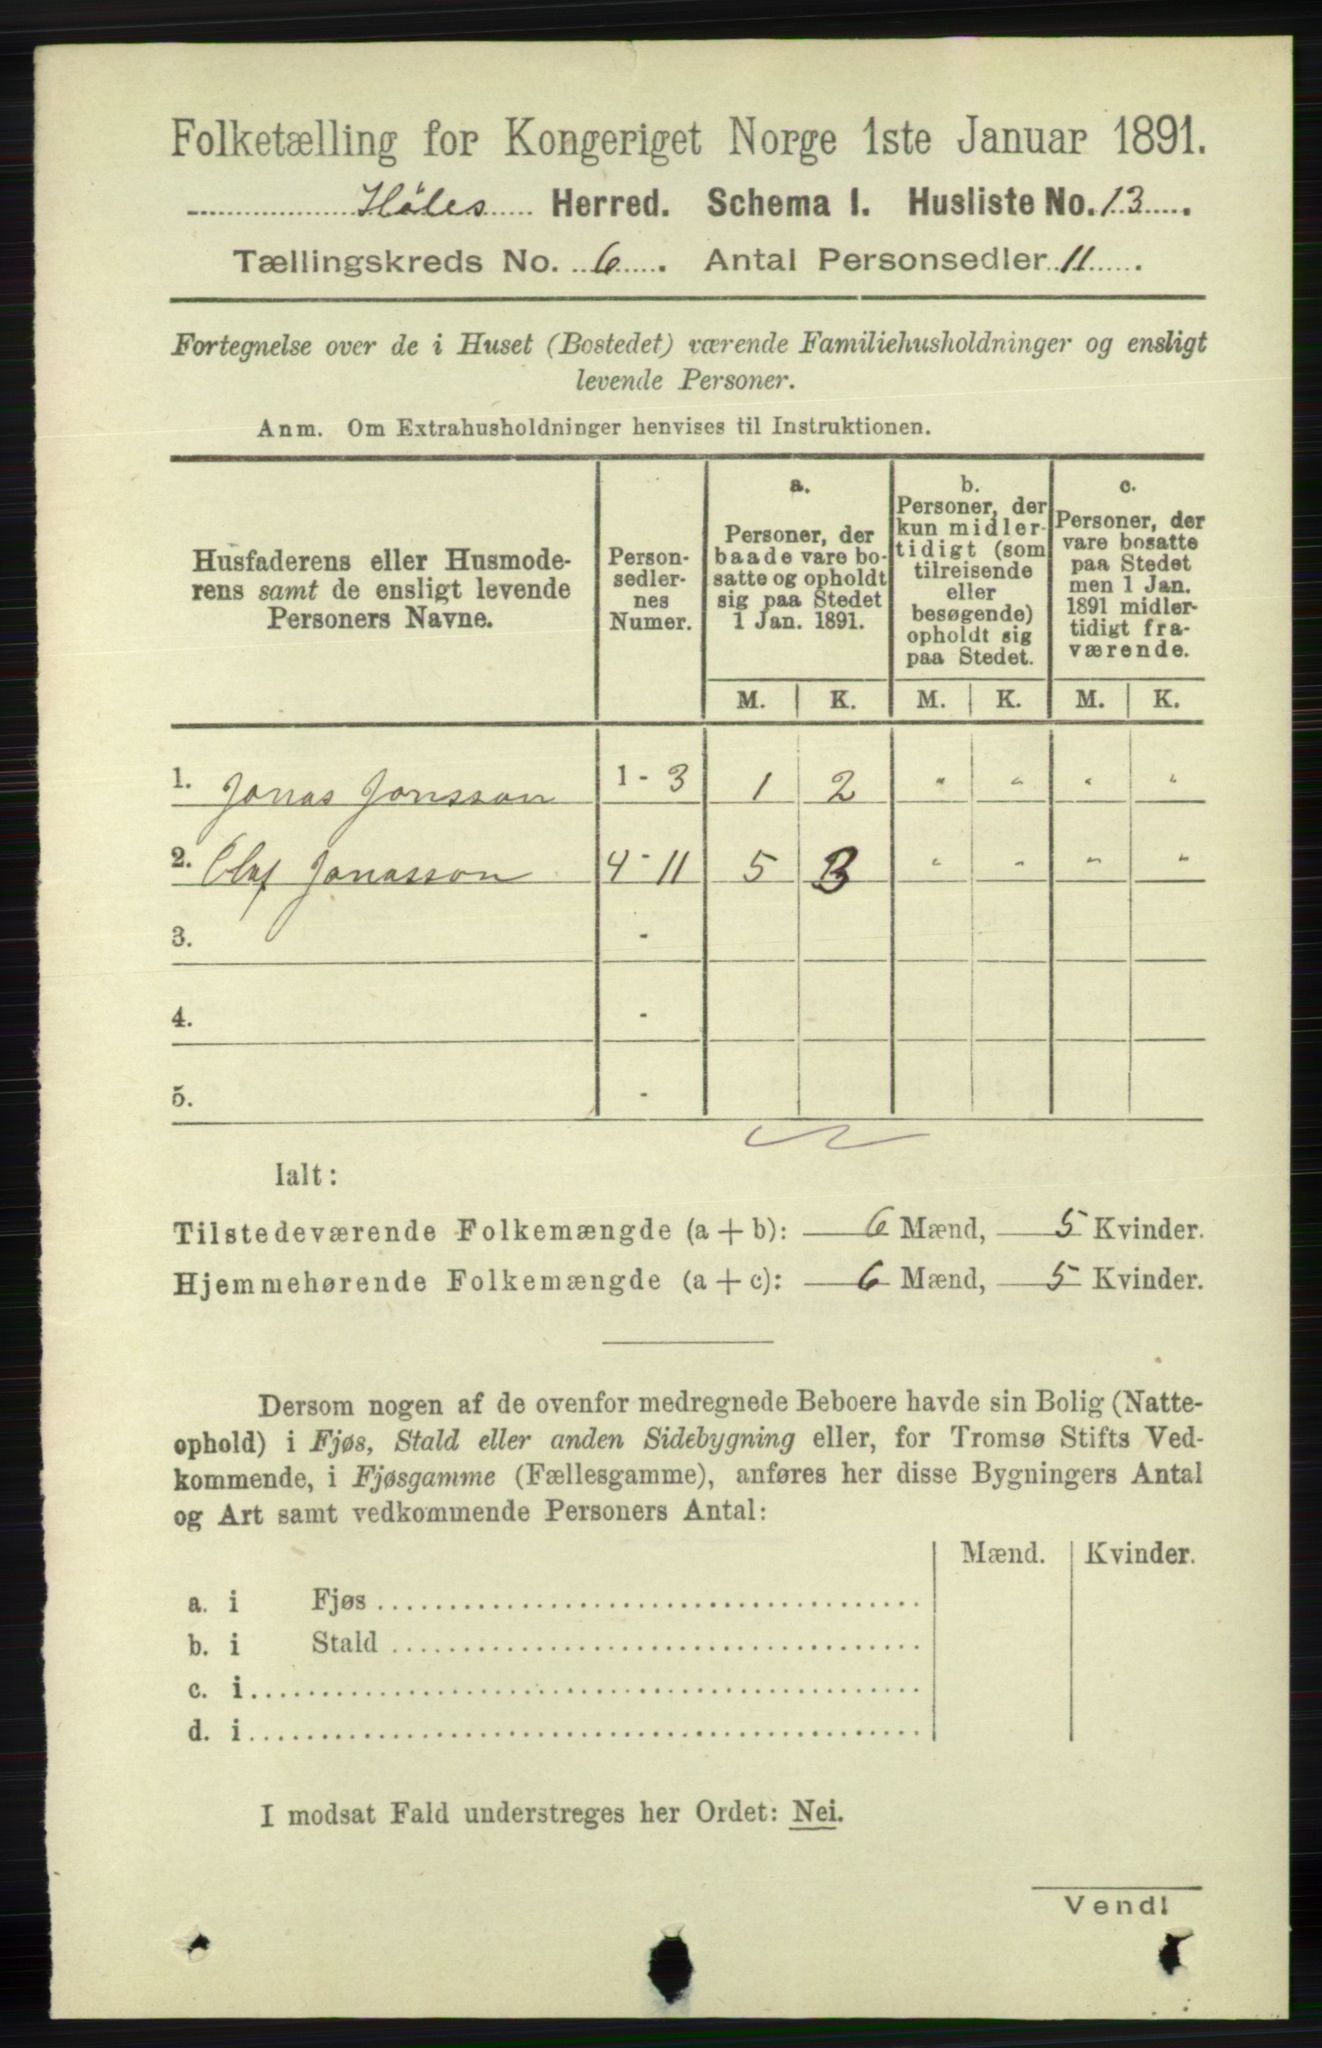 Folketælling for Kongeriget Norge 1ste Januar 1891.
Høles Herred. Schema I. Husliste No. 13.
Tællingskreds No. 6. Antal Personsedler 11.
Fortegnelse over de i Huset (Bostedet) værende Familiehusholdninger og ensligt
levende Personer.
Anm. Om Extrahusholdninger henvises til Instruktionen.
Husfaderens eller Husmode-
rens samt de ensligt levende
Personers Navne.
Person-
sedler-
nes
Numer.
a.
Personer, der
baade vare bo-
satte og opholdt
sig paa Stedet
1 Jan. 1891.
b.
Personer, der
kun midler-
tidigt (som
tilreisende
eller
besøgende)
opholdt sig
paa Stedet.
c.
Personer, der
vare bosatte
paa Stedet
men 1 Jan.
1891 midler-
tidigt fra-
værende.
M. K. M. K. M. K.
1. Jonas Jonsson 1 - 3 1 2 " " " "
2. Olaf Jonasson 4 - 11 5 3 " " " "
3. -
4. -
5. -
Ialt:
Tilstedeværende Folkemængde (a + b): 6 Mænd, 5 Kvinder.
Hjemmehørende Folkemængde (a + c): 6 Mænd, 5 Kvinder.
Dersom nogen af de ovenfor medregnede Beboere havde sin Bolig (Natte-
ophold) i Fjøs, Stald eller anden Sidebygning eller, for Tromsø Stifts Ved-
kommende, i Fjøsgamme (Fællesgamme), anføres her disse Bygningers Antal
og Art samt vedkommende Personers Antal:
Mænd. Kvinder.
a. i Fjøs
b. i Stald
c. i
d. i
I modsat Fald understreges her Ordet: Nei.
Vend!